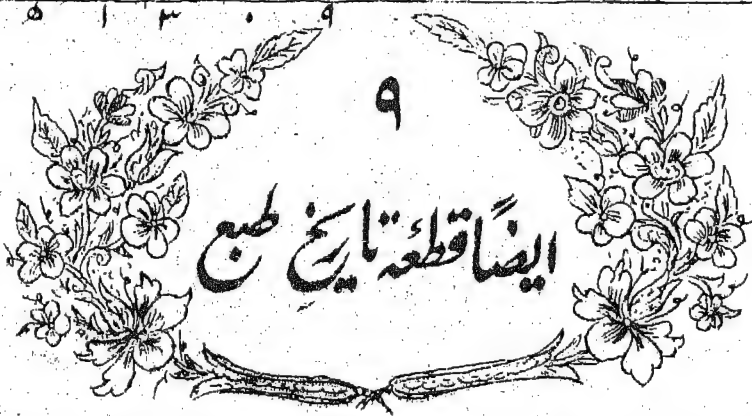 ۱۳۰۹ ھ
۹
ایضاً قطعۂ تاریخ طبع